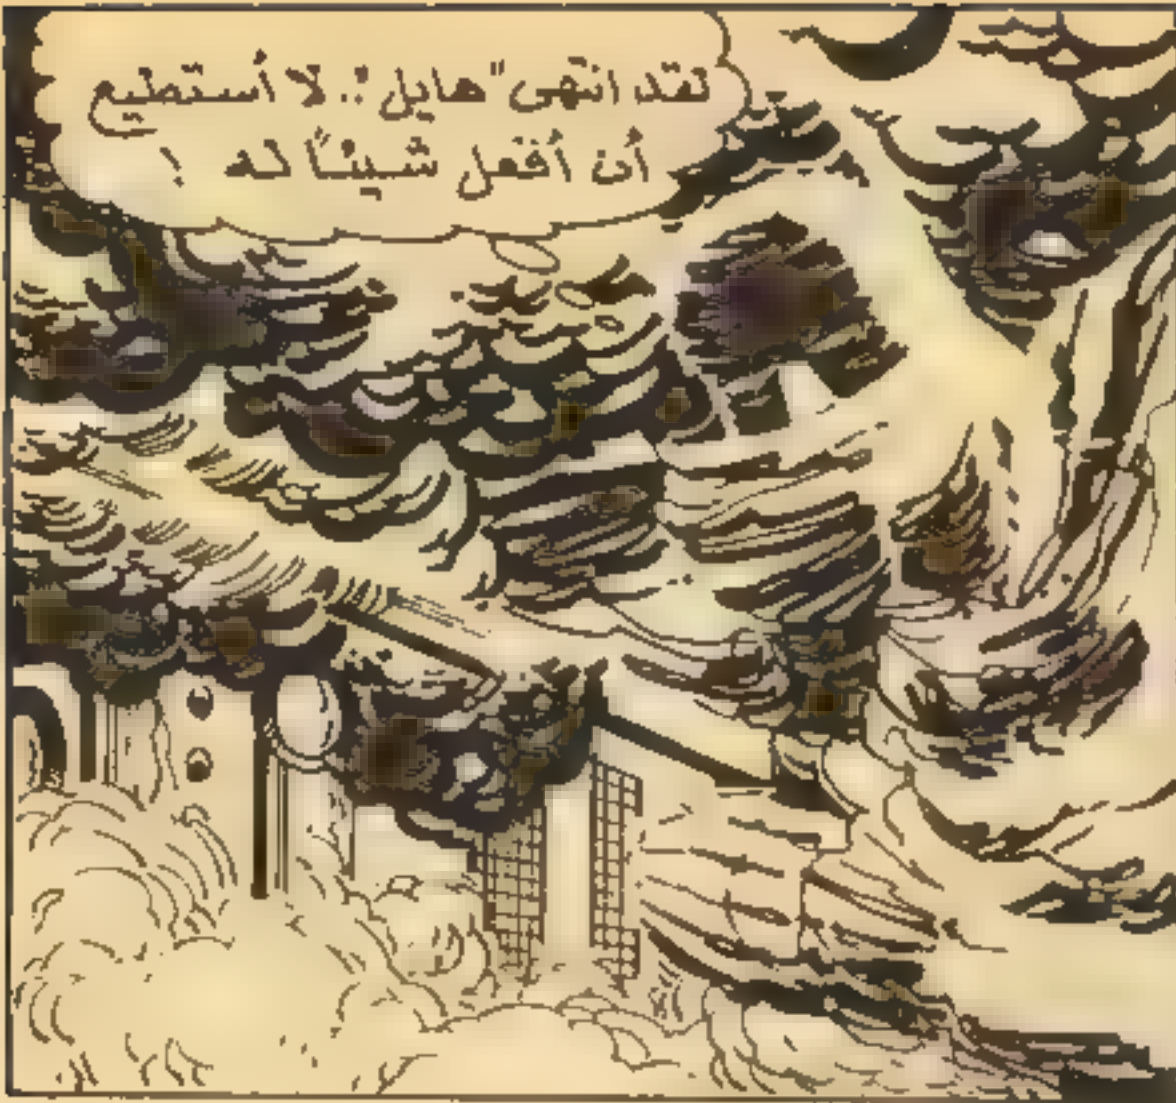 لقد انتهى "هايل".. لا أستطيع
أن أفعل شيئاً له !